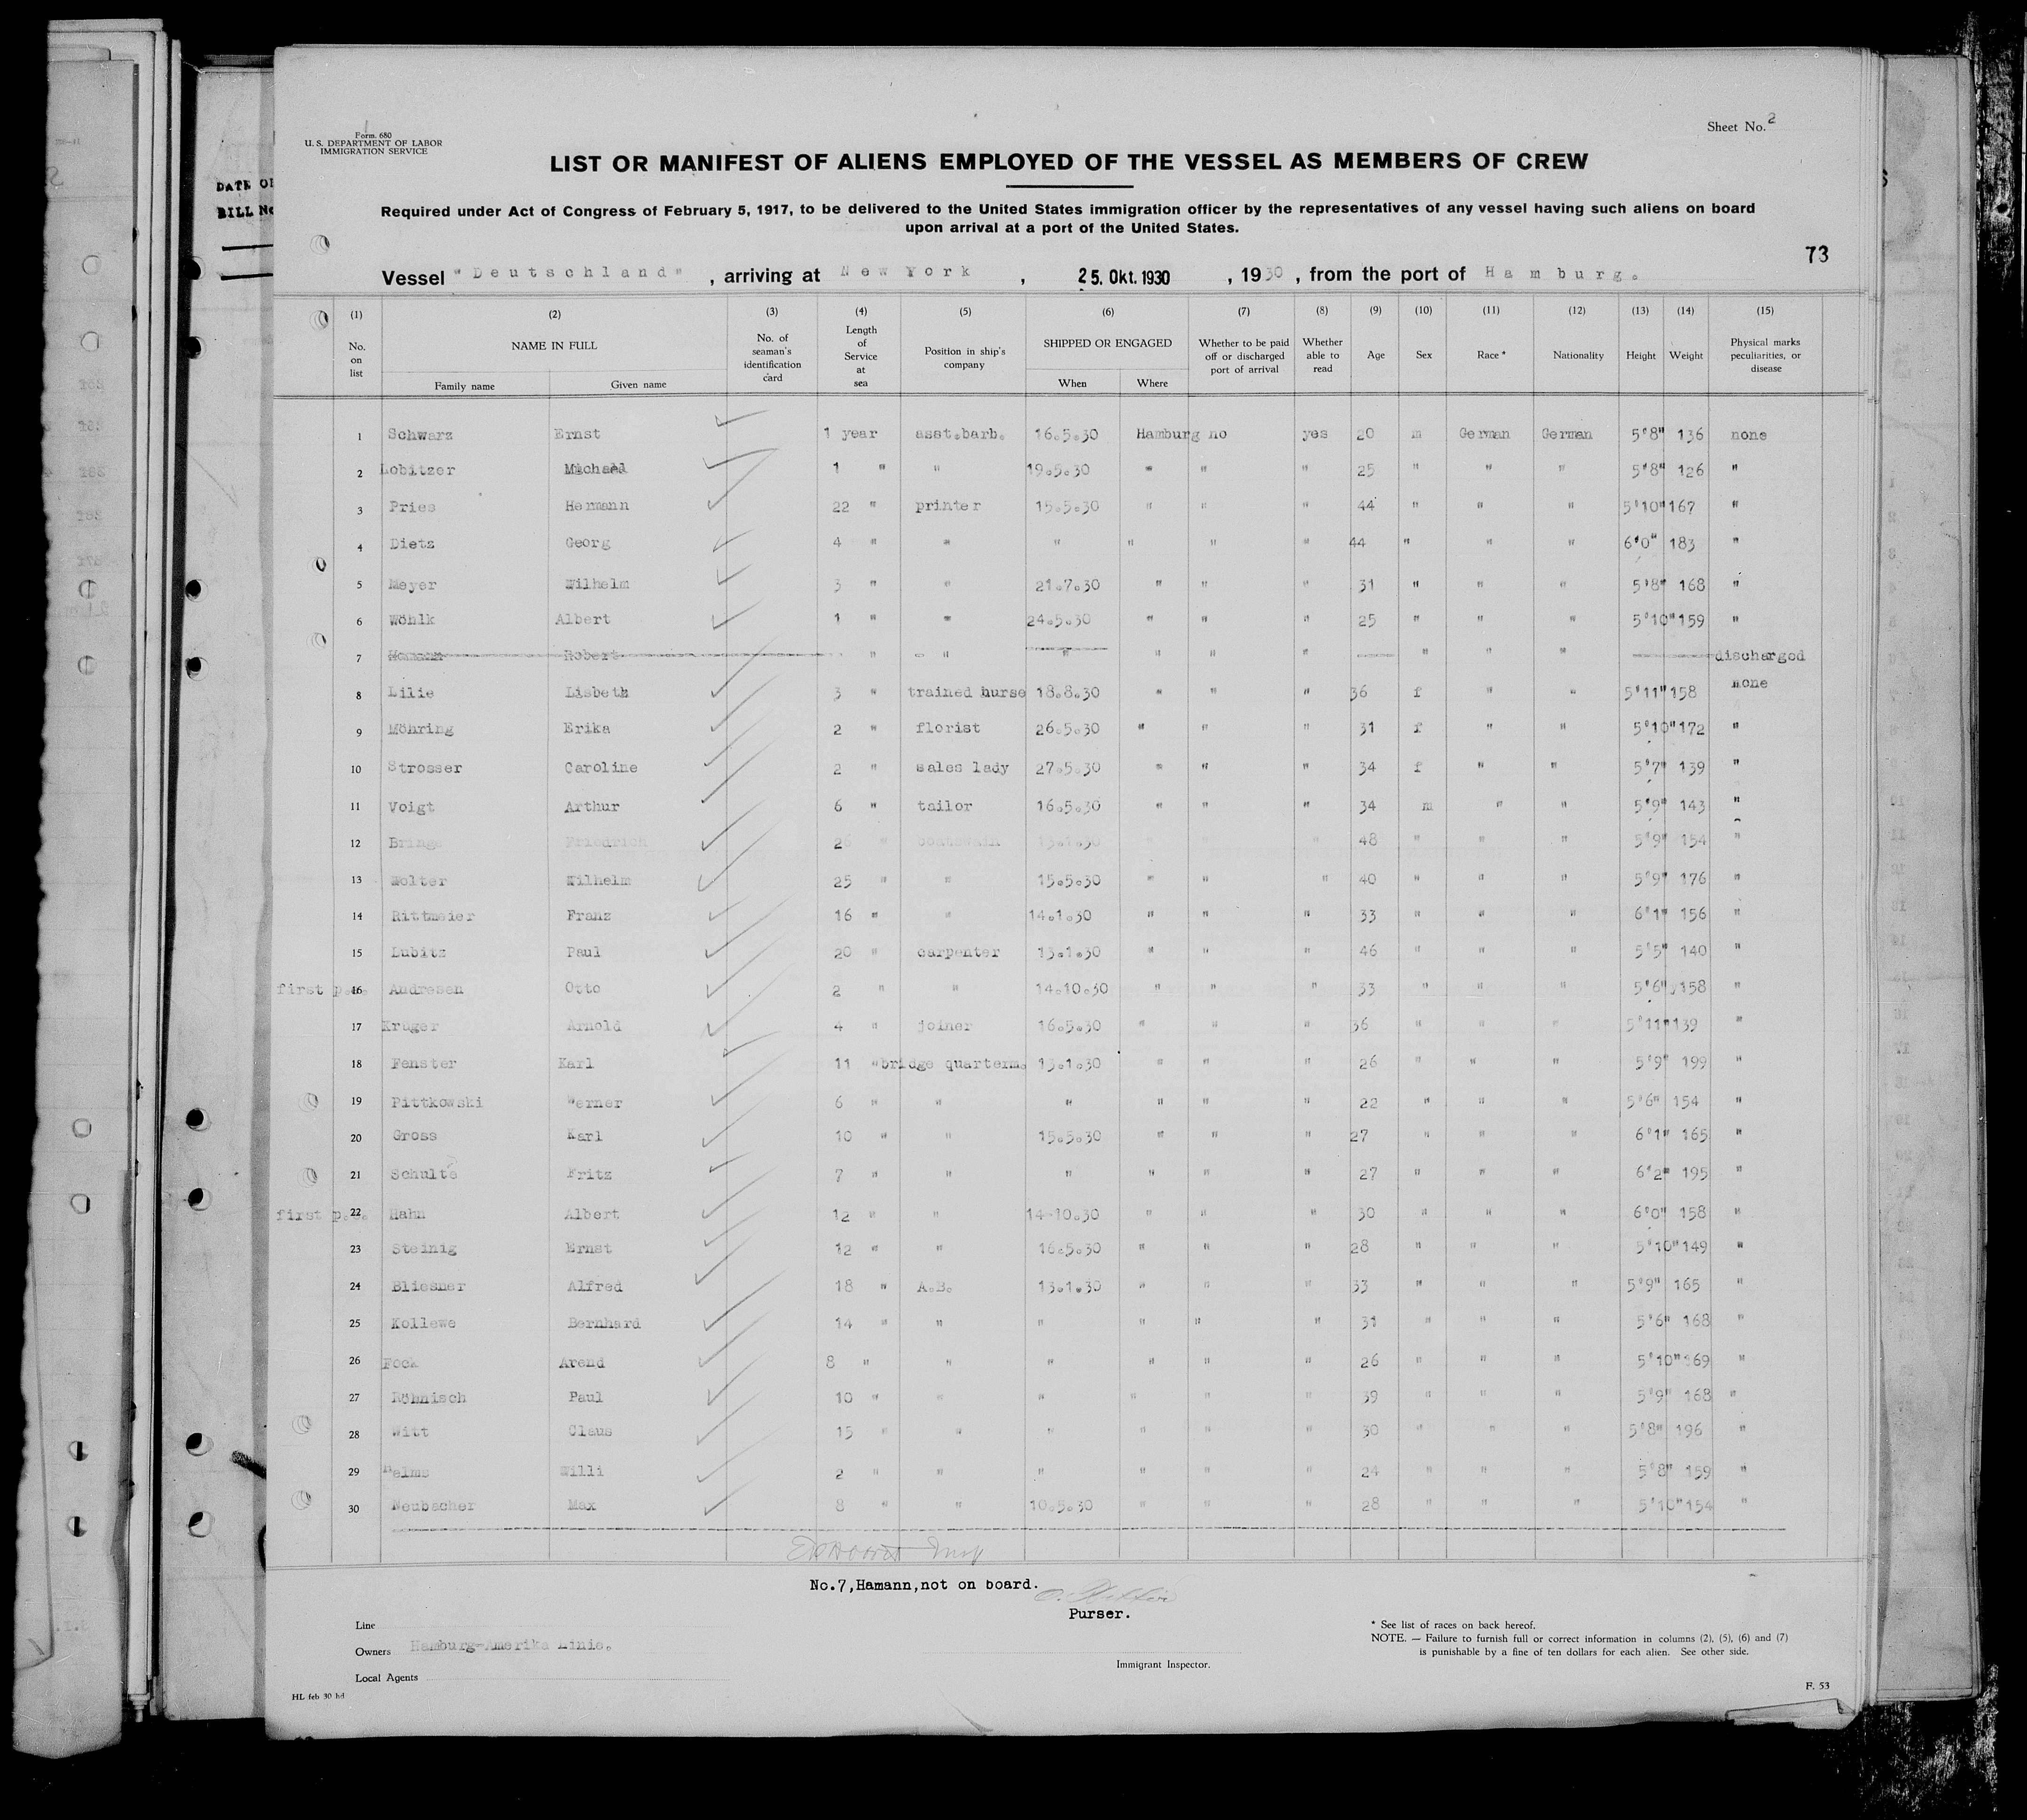 Form. 680
U. S. DEPARTMENT OF LABOR
IMMIGRATION SERVICE
Sheet No. 2
LIST OR MANIFEST OF ALIENS EMPLOYED OF THE VESSEL AS MEMBERS OF CREW
Required under Act of Congress of February 5, 1917, to be delivered to the United States immigration officer by the representatives of any vessel having such aliens on board
upon arrival at a port of the United States.
73
Vessel "Deutschland" , arriving at New York , 25. Okt. 1930 , 1930 , from the port of Hamburg.
DATE OF
BILL No
(1) (2) (3) (4) (5) (6) (7) (8) (9) (10) (11) (12) (13) (14) (15)
No. on list NAME IN FULL Family name Given name No. of seaman's identification card Length of Service at sea Position in ship's company SHIPPED OR ENGAGED When Where Whether to be paid off or discharged port of arrival Whether able to read Age Sex Race * Nationality Height Weight Physical marks peculiarities, or disease
1 Schwarz Ernst 1 year asst.barb. 16.5.30 Hamburg no yes 20 m German German 5'8" 136 none
2 Lobitzer Michael 1 " " 19.5.30 " " " 25 " " " 5'8" 126 "
3 Pries Hermann 22 " printer 15.5.30 " " " 44 " " " 5'10" 167 "
4 Dietz Georg 4 " " " " " " 44 " " " 6'0" 183 "
5 Meyer Wilhelm 3 " " 21.7.30 " " " 31 " " " 5'8" 168 "
6 Wöhlk Albert 1 " " 24.5.30 " " " 25 " " " 5'10" 159 "
7 Hamann Robert " " " " " " " " " discharged
8 Lilie Lisbeth 3 " trained nurse 18.8.30 " " " 36 f " " 5'11" 158 none
9 Möhring Erika 2 " florist 26.5.30 " " " 31 f " " 5'10" 172 "
10 Strosser Caroline 2 " sales lady 27.5.30 " " " 34 f " " 5'7" 139 "
11 Voigt Arthur 6 " tailor 16.5.30 " " " 34 m " " 5'9" 143 "
12 Brings Friedrich 26 " boatswain 13.1.30 " " " 48 " " " 5'9" 154 "
13 Wolter Wilhelm 25 " " 15.5.30 " " " 40 " " " 5'9" 176 "
14 Rittmeier Franz 16 " " 14.1.30 " " " 33 " " " 6'1" 156 "
15 Lubitz Paul 20 " carpenter 13.1.30 " " " 46 " " " 5'5" 140 "
first p.e. 16 Andresen Otto 2 " " 14.10.30 " " " 33 " " " 5'6" 158 "
17 Krüger Arnold 4 " joiner 16.5.30 " " " 36 " " " 5'11" 139 "
18 Fenster Karl 11 " bridge quarterm. 13.1.30 " " " 26 " " " 5'9" 199 "
19 Pittkowski Werner 6 " " " " " " 22 " " " 5'6" 154 "
20 Gross Karl 10 " " 15.5.30 " " " 27 " " " 6'1" 165 "
21 Schulte Fritz 7 " " " " " " 27 " " " 6'2" 195 "
first p.e. 22 Hahn Albert 12 " " 14-10.30 " " " 30 " " " 6'0" 158 "
23 Steinig Ernst 12 " " 16.5.30 " " " 28 " " " 5'10" 149 "
24 Bliesner Alfred 18 " A.B. 13.1.30 " " " 33 " " " 5'9" 165 "
25 Kollewe Bernhard 14 " " " " " " 31 " " " 5'6" 168 "
26 Fock Arend 8 " " " " " " 26 " " " 5'10" 169 "
27 Röhnisch Paul 10 " " " " " " 39 " " " 5'9" 168 "
28 Witt Claus 15 " " " " " " 30 " " " 5'8" 196 "
29 Helms Willi 2 " " " " " " 24 " " " 5'8" 159 "
30 Neubacher Max 8 " " 10.5.30 " " " 28 " " " 5'10" 154 "
No.7,Hamann,not on board.
Purser.
Line
Owners Hamburg-Amerika Linie.
Local Agents
Immigrant Inspector.
* See list of races on back hereof.
NOTE. — Failure to furnish full or correct information in columns (2), (5), (6) and (7)
is punishable by a fine of ten dollars for each alien. See other side.
HL feb 30 bd
F. 53